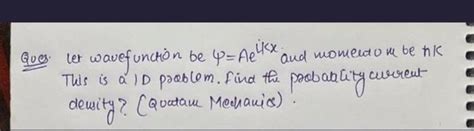 Ques. let wavefunction be ψ=Ae^ikx and momentum be ħK
This is a 1D problem. find the probability current
density? (Quatum Mechanics).